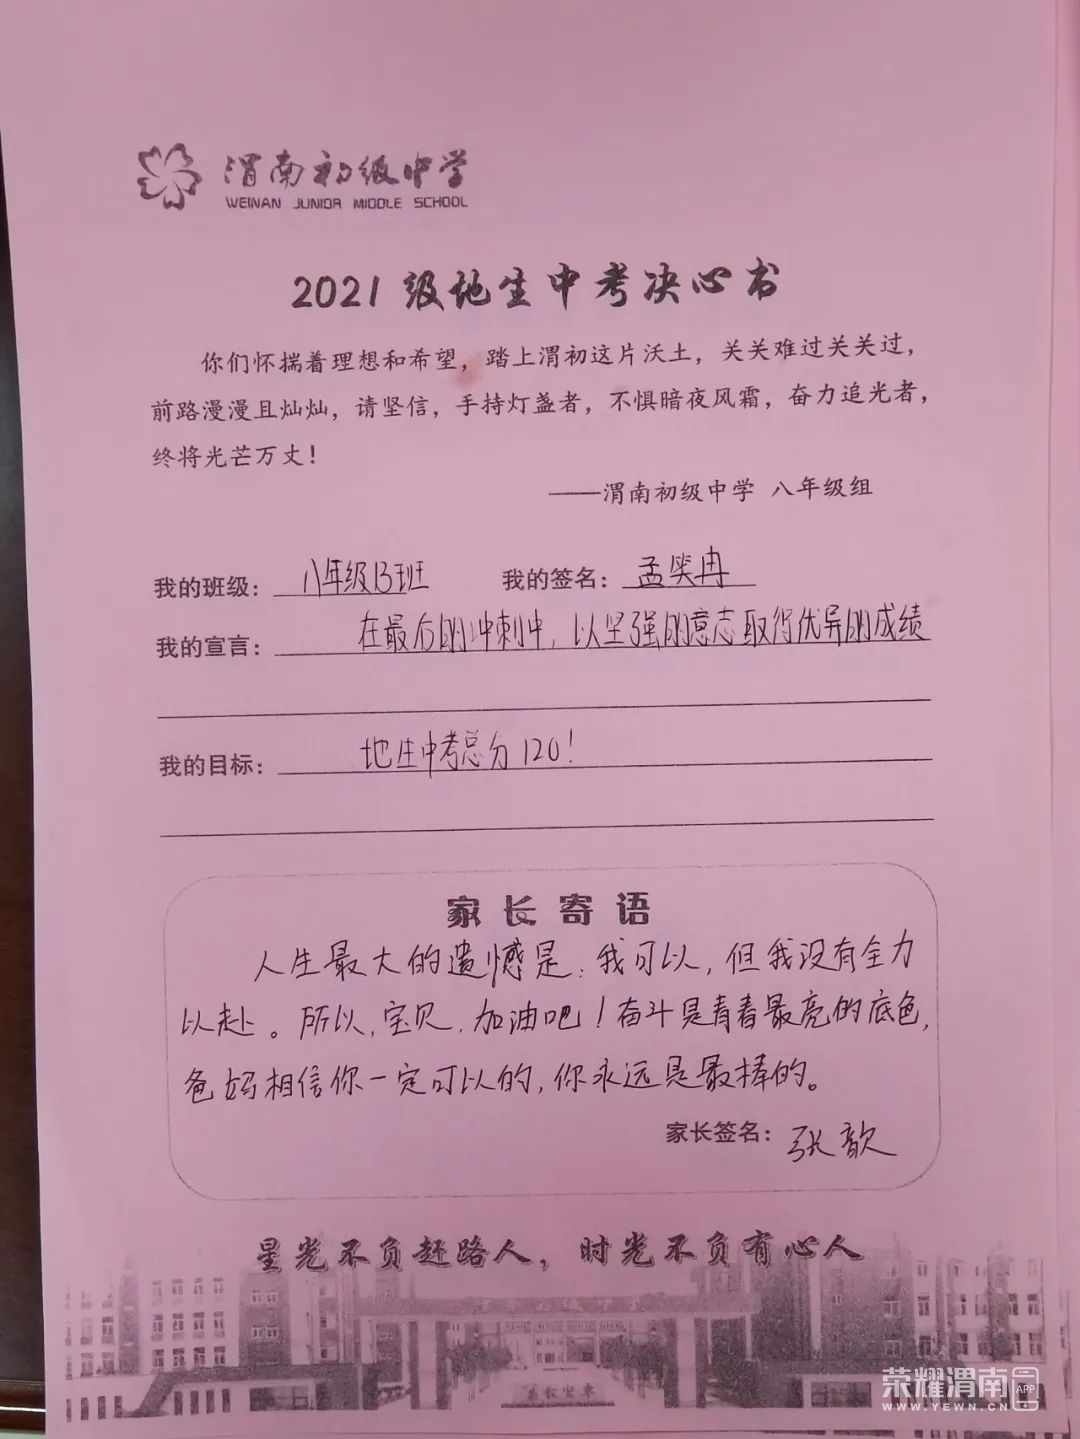 渭南初级中学
WEINAN JUNIOR MIDDLE SCHOOL
2021级地生中考决心书
你们怀揣着理想和希望，踏上渭初这片沃土，关关难过关关过，
前路漫漫且灿灿，请坚信，手持灯盏者，不惧暗夜风霜，奋力追光者，
终将光芒万丈！
——渭南初级中学 八年级组
我的班级： 八年级13班 我的签名： 孟笑冉
我的宣言： 在最后的冲刺中，以坚强的意志取得优异的成绩
我的目标： 地生中考总分120！
家长寄语
人生最大的遗憾是：我可以，但我没有全力
以赴。所以，宝贝，加油吧！奋斗是青春最亮的底色，
爸妈相信你一定可以的，你永远是最棒的。
家长签名： 张歆
星光不负赶路人，时光不负有心人
荣耀渭南 APP
WWW.YEWN.CN